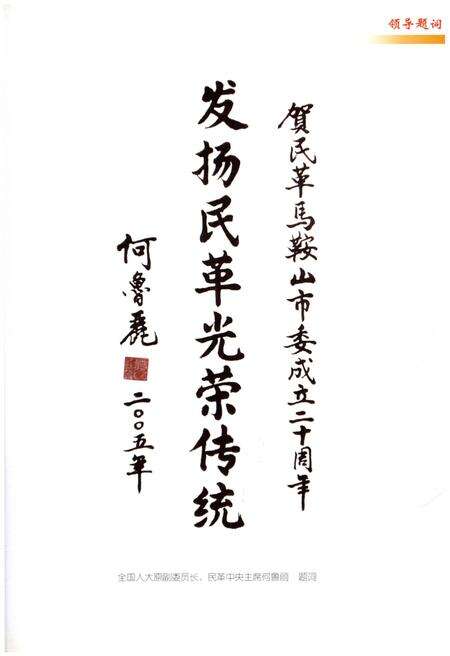 领导题词
贺民革馬鞍山市委成立二十周年
发扬民革光荣传统
何鲁麗
二〇〇五年
全国人大原副委员长、民革中央主席何鲁丽 题词